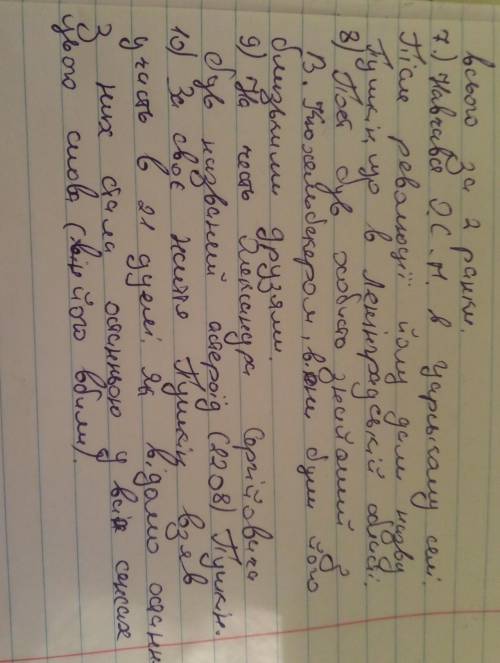 всього за 2 ранки.
7.) Навчався О.С.П. в Царському селі.
Після революції йому дали назву
Пушкін, що в Ленінградській області.
8) Поет був особисто знайомий з
В. Кюхельбекером, вони були його
близькими друзями.
9) На честь Олександра Сергійовича
був названий астероїд (2208) Пушкін.
10) За своє життя Пушкін взяв
участь в 21 дуелі. Як відомо остання
з них стала останньою у всіх сенсах
цього слова (він його вбили).